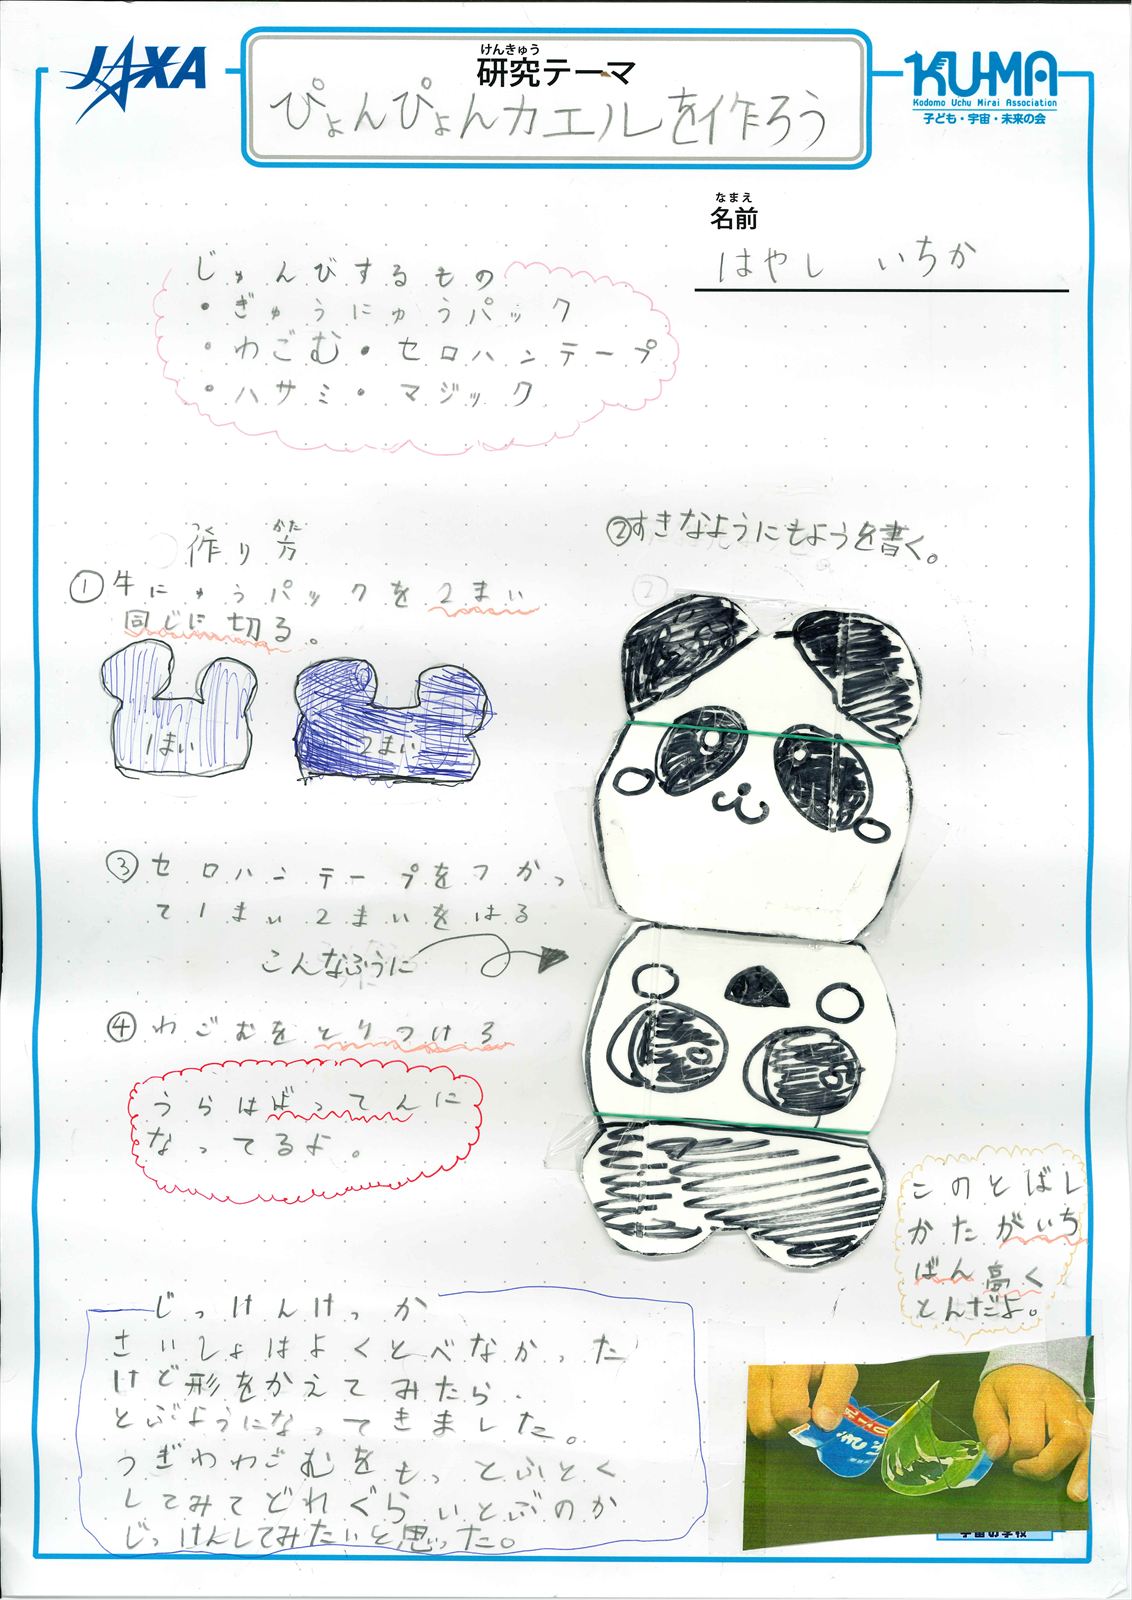 JAXA
けんきゅう
研究テーマ
ぴょんぴょんカエルを作ろう
KU-MA
Kodomo Uchu Mirai Association
子ども・宇宙・未来の会
なまえ
名前
はやし いちか
じゅんびするもの
・ぎゅうにゅうパック
・わごむ・セロハンテープ
・ハサミ・マジック
つく かた
作り方
①牛にゅうパックを2まい
同じに切る。
1まい
2まい
②すきなようにもようを書く。
③セロハンテープをつかっ
て1まい2まいをはる
こんなふうに
④わごむをとりつける
うらはばってんに
なってるよ。
このとばし
かたがいち
ばん高く
とんだよ。
じっけんけっか
さいしょはよくとべなかった
けど形をかえてみたら、
とぶようになってきました。
つぎわわごむをもっとふとく
してみてどれぐらいとぶのか
じっけんしてみたいと思った。
宇宙の学校